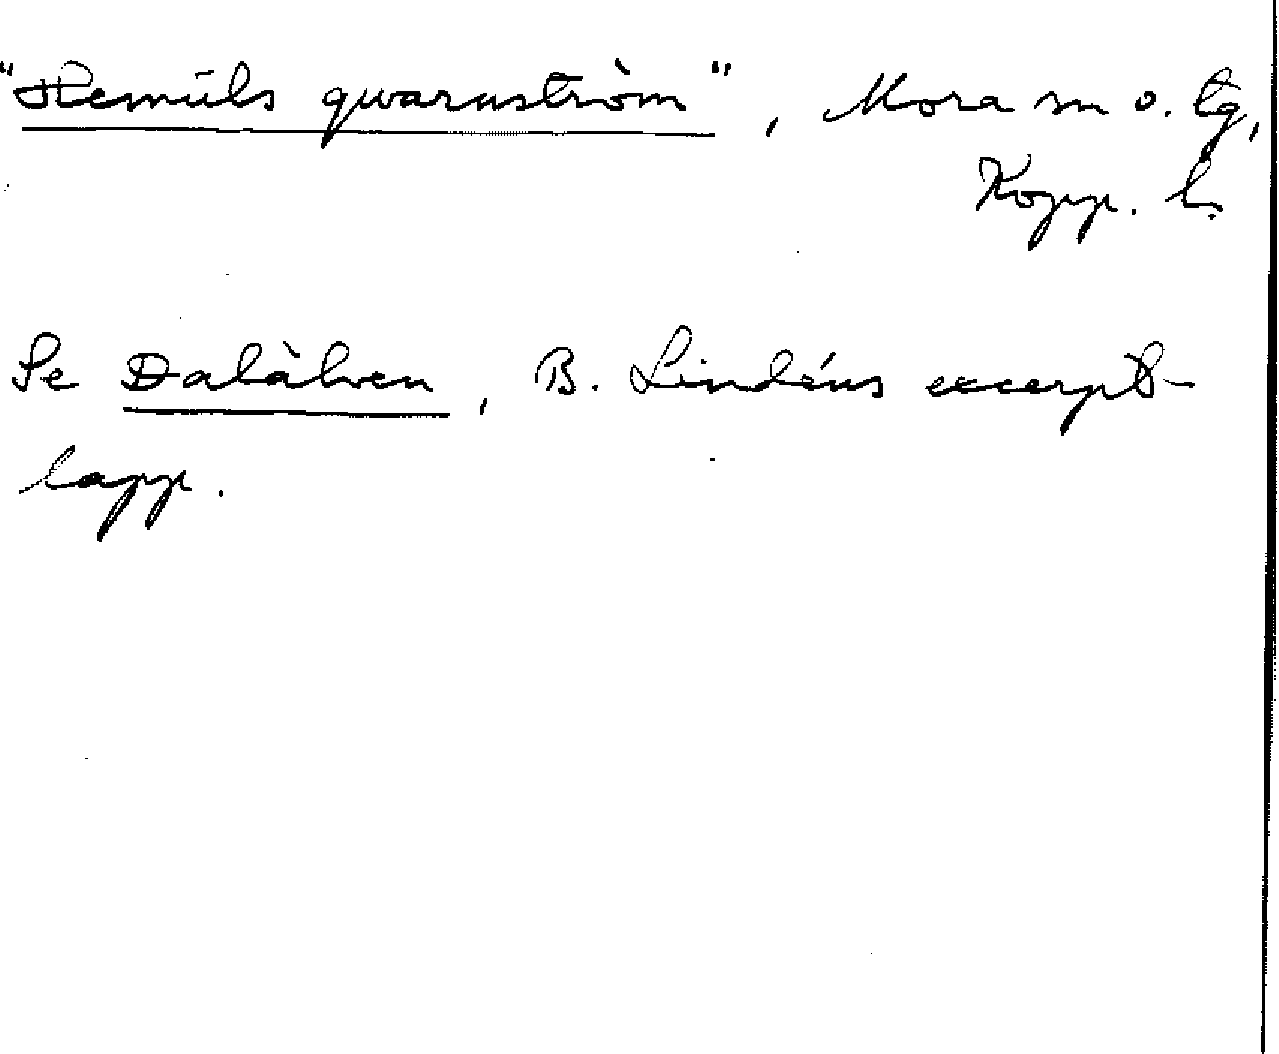 "Hemūls qwarnström", Mora sn o. tg,
Kopp. l.
Se Dalälven, B. Lindéns excerpt-
lapp.